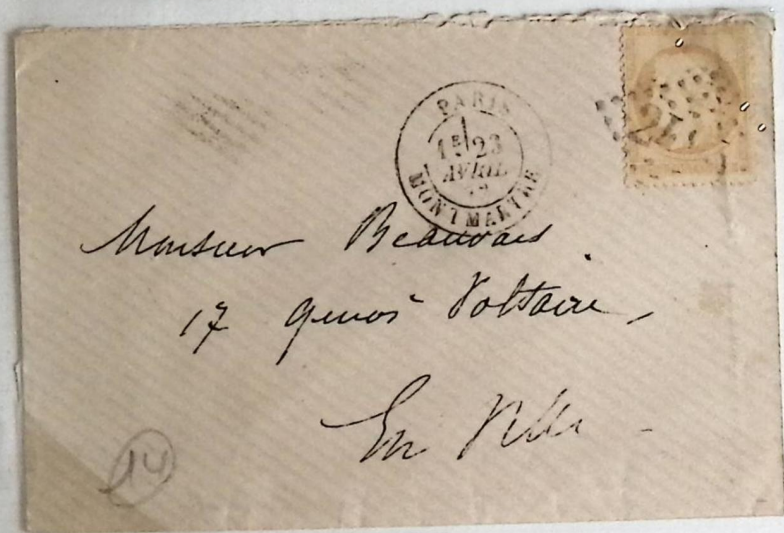 PARIS
1E 23
AVRIL
MONTMARTRE
Monsieur Beauvais
17 quai Voltaire,
En Ville -
14